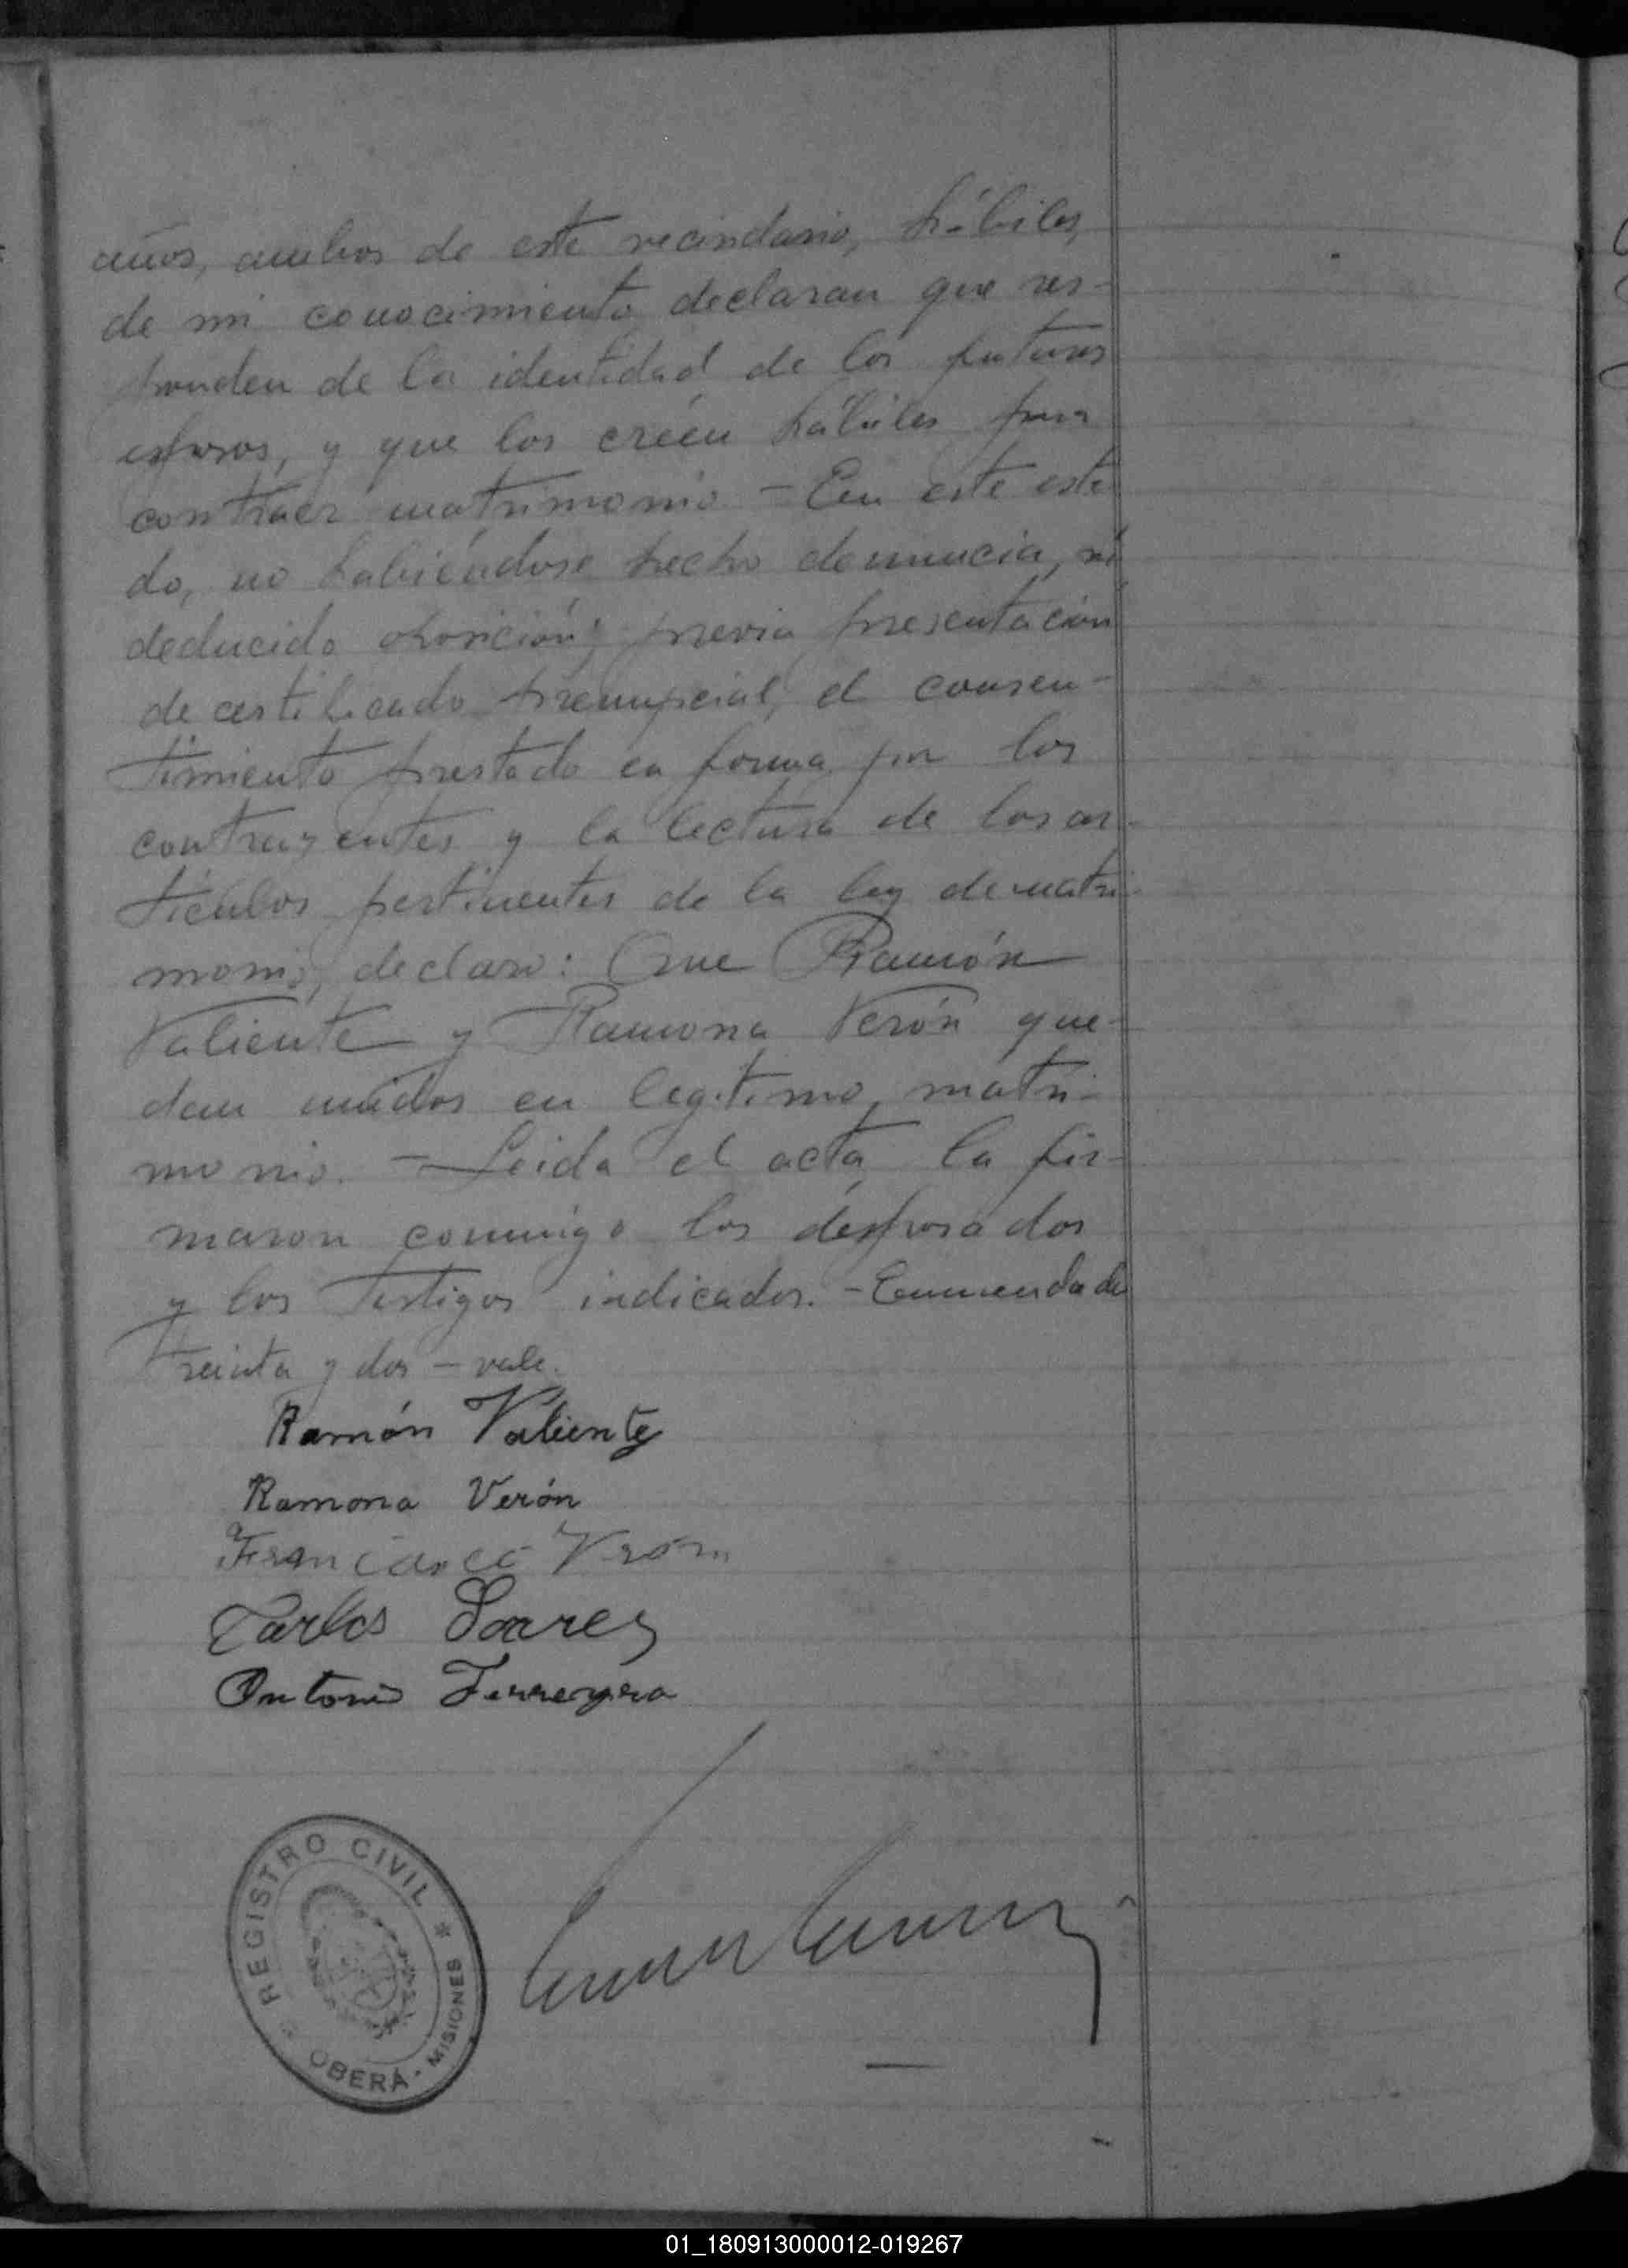 años, ambos de este vecindario, hábiles,
de mi conocimiento declaran que res-
ponden de la identidad de los futuros
esposos, y que los créen hábiles para
contraer matrimonio - En este esta
do, no habiéndose hecho denuncia, ni
deducido oposición; previa presentación
de certificado prenupcial, el consen-
timiento prestado en forma por los
contrayentes y la lectura de los ar-
tículos pertinentes de la ley de matri-
monio, declaro: Que Ramón
Valiente y Ramona Verón que-
dan unidos en legítimo matri-
monio. - Leida el acta, la fir-
maron conmigo los desposados
y los testigos indicados. - Enmendado
treinta y dos - vale.
Ramón Valiente
Ramona Verón
Francisco Vrón
Carlos Soarez
Antonio Ferreyra
REGISTRO CIVIL *
OBERÁ - MISIONES
01_180913000012-019267